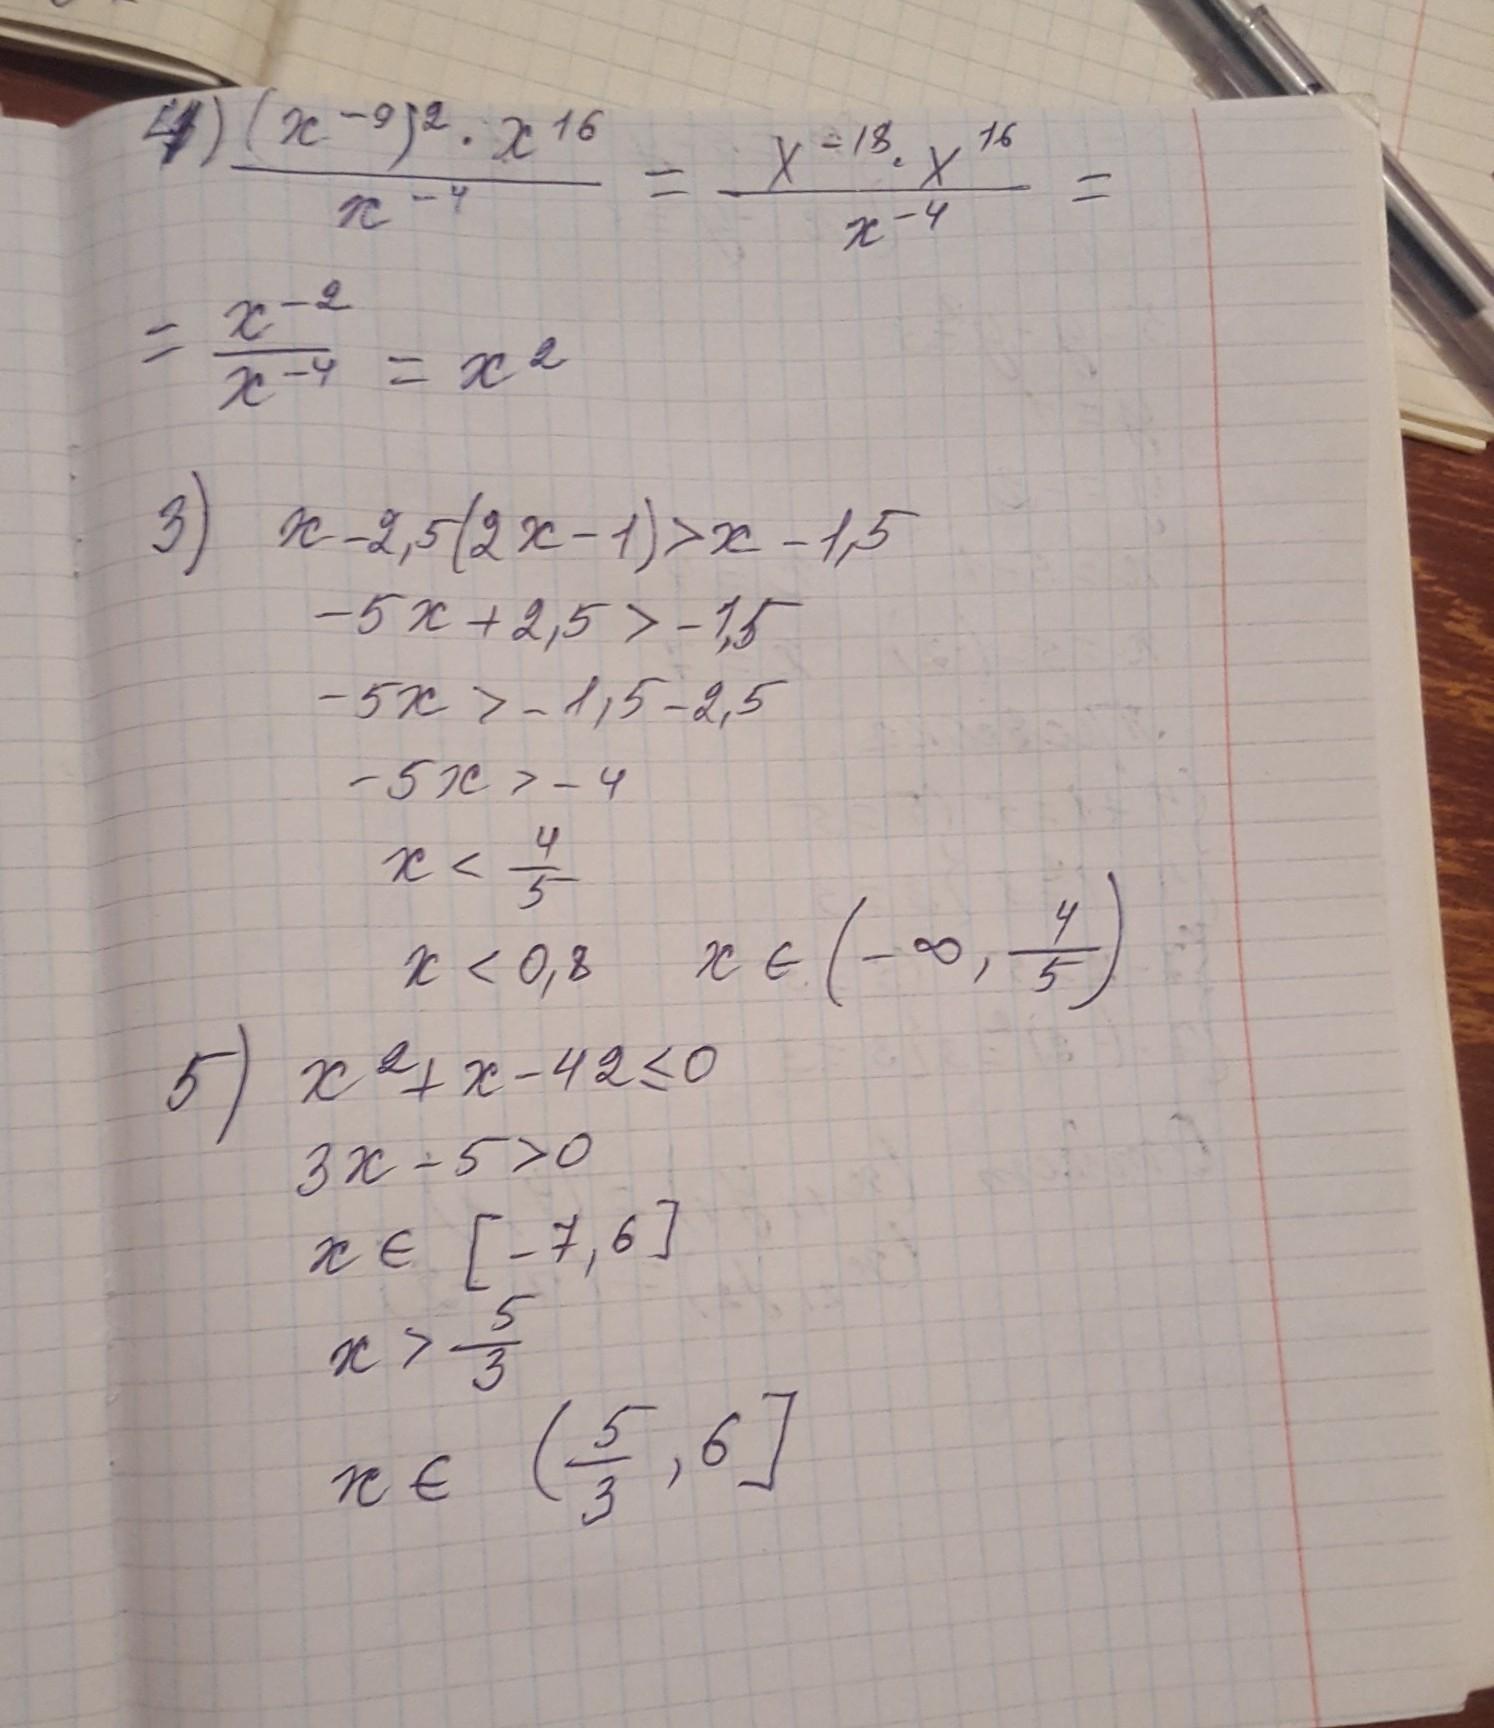 4) (x⁻⁹)² · x¹⁶ / x⁻⁴ = x⁻¹⁸ · x¹⁶ / x⁻⁴ =
= x⁻² / x⁻⁴ = x²
3) x - 2,5(2x - 1) > x - 1,5
-5x + 2,5 > -1,5
-5x > -1,5 - 2,5
-5x > -4
x < 4/5
x < 0,8 x ∈ (-∞, 4/5)
5) x² + x - 42 ≤ 0
3x - 5 > 0
x ∈ [-7, 6]
x > 5/3
x ∈ (5/3, 6]